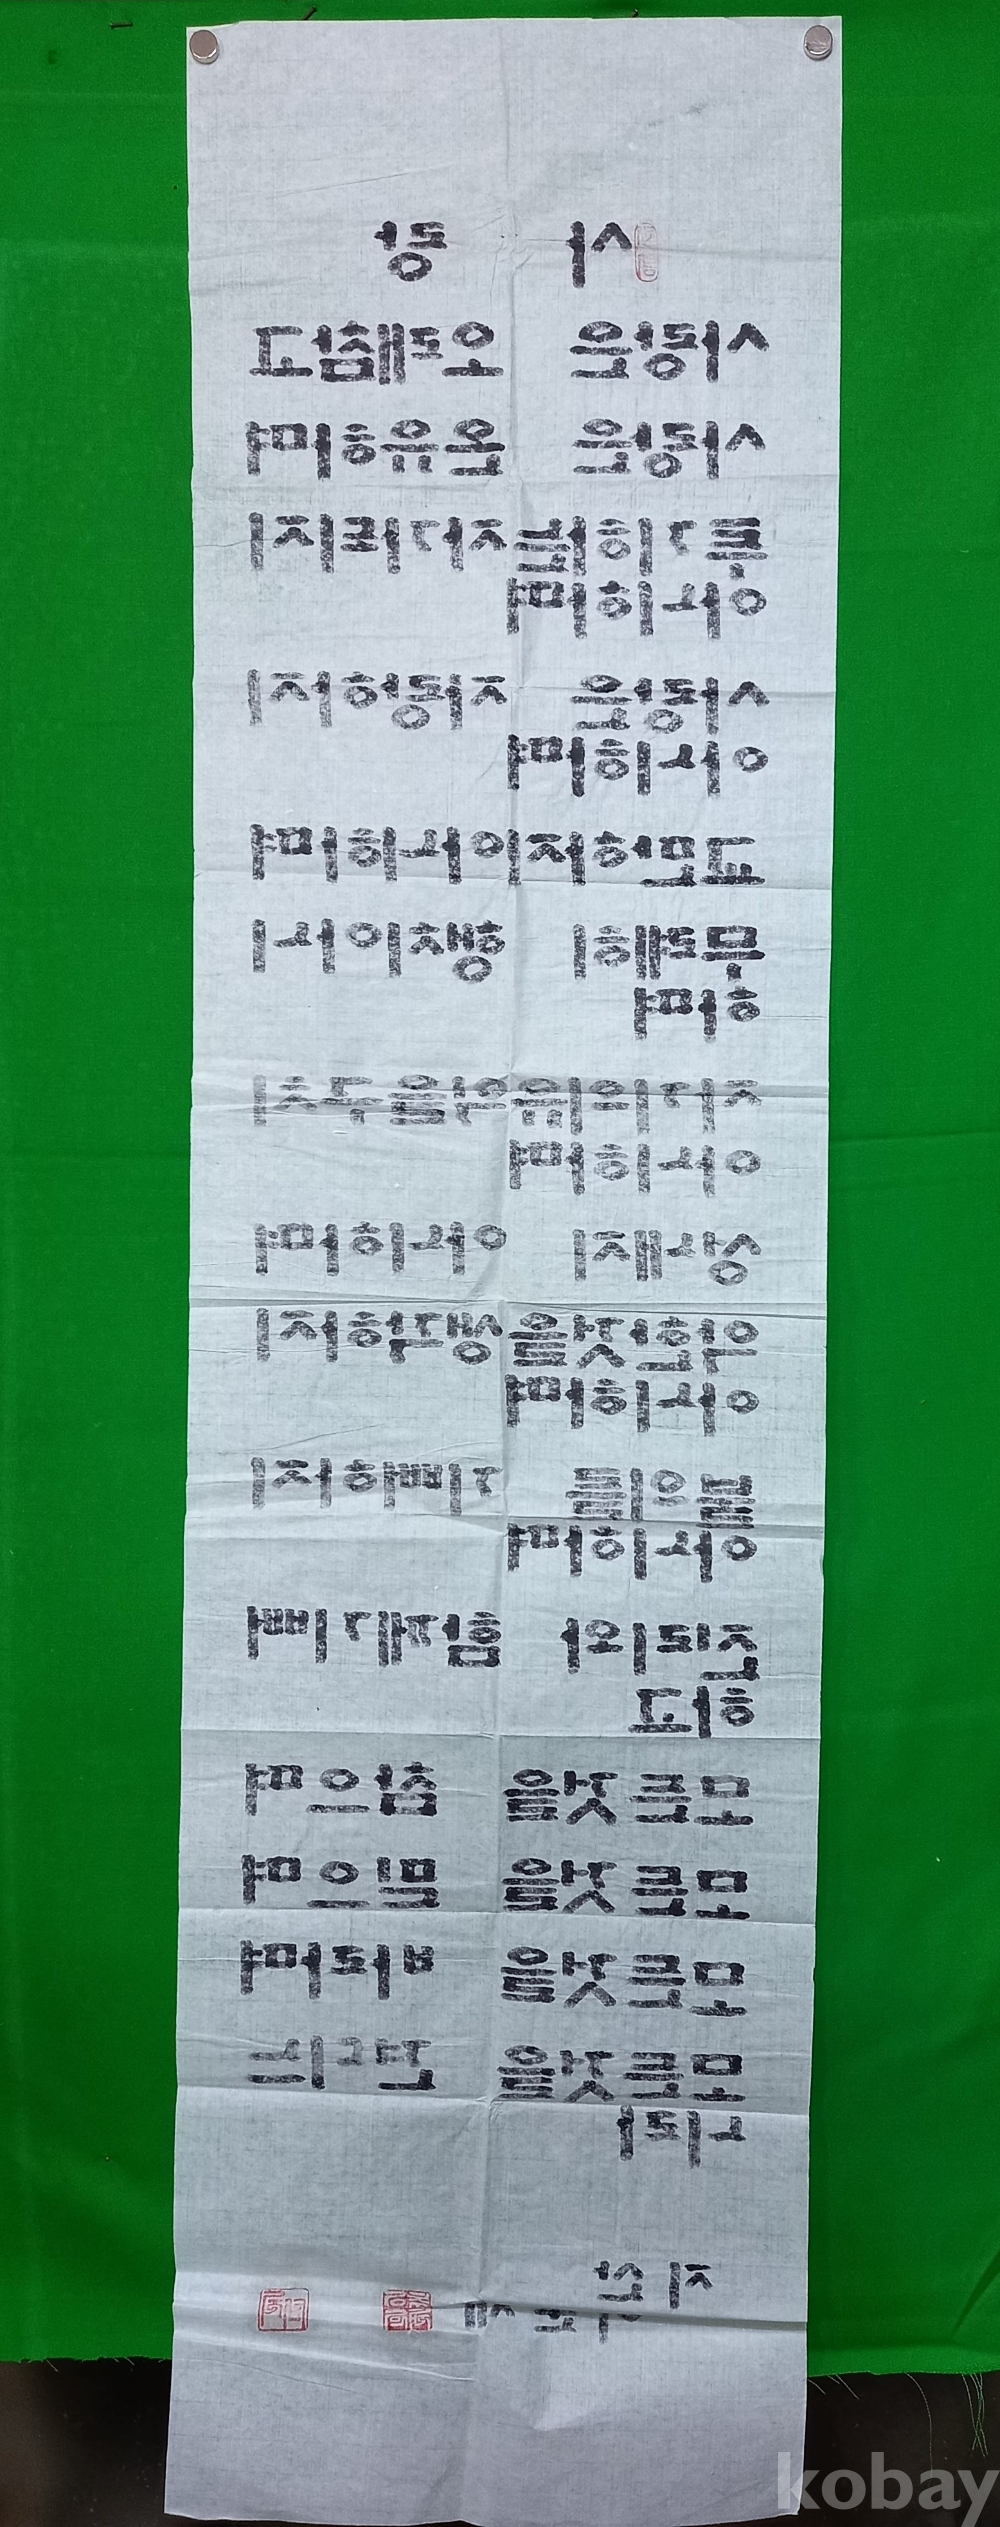 사 랑
사랑은 오래참고
사랑은 온유하며
투기하는자가되지
아니하며
사랑은 자랑하지
아니하며
교만하지아니하며
무례히 행치아니
하며
자기의유익을구치
아니하며
성내지 아니하며
악한것을생각하지
아니하며
불의를 기뻐하지
아니하며
진리와 함께기뻐
하고
모든것을 참으며
모든것을 믿으며
모든것을 바라며
모든것을 견디느
니라
kobay